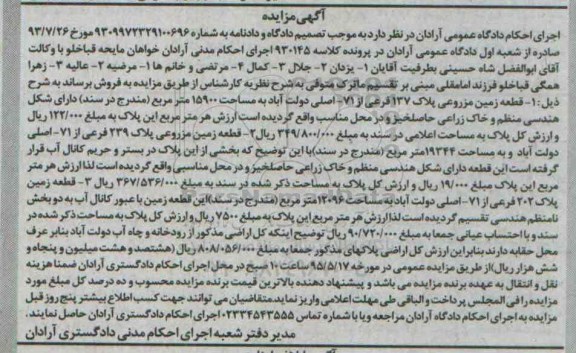 آگهی مزایده
اجرای احکام دادگاه عمومی آرادان در نظر دارد به موجب تصمیم دادگاه و دادنامه به شماره ۹۳۰۹۹۷۲۳۲۹۱۰۰۶۹۶ مورخ ۹۳/۷/۲۶
صادره از شعبه اول دادگاه عمومی آرادان در پرونده کلاسه ۹۳۰۱۴۵ اجرای احکام مدنی آرادان خواهان مایحه قباخلو با وکالت
آقای ابوالفضل شاه حسینی بطرفیت آقایان ۱- یزدان ۲- جلال ۳- کمال ۴- مرتضی و خانم ها ۱- مرضیه ۲- عالیه ۳- زهرا
همگی قباخلو فرزند امامقلی مبنی بر تقسیم ماترک متوفی به شرح نظریه کارشناس از طریق مزایده به فروش برساند به شرح
ذیل: ۱- قطعه زمین مزروعی پلاک ۱۳۷ فرعی از ۷۱- اصلی دولت آباد به مساحت ۱۵۹۰۰ متر مربع (مندرج در سند) دارای شکل
هندسی منظم و خاک زراعی حاصلخیز و در محل مناسب واقع گردیده است ارزش هر متر مربع این پلاک به مبلغ ۱۲۲/۰۰۰ ریال
و ارزش کل پلاک به مساحت اعلامی در سند به مبلغ ۳۴۹/۸۰۰/۰۰۰ ریال ۲- قطعه زمین مزروعی پلاک ۲۳۹ فرعی از ۷۱- اصلی
دولت آباد و به مساحت ۱۹۳۴۴ متر مربع (مندرج در سند) با این توضیح که بخشی از این پلاک در بستر و حریم کانال آب قرار
گرفته است این قطعه دارای شکل هندسی منظم و خاک زراعی حاصلخیز و در محل مناسبی واقع گردیده است لذا ارزش هر متر
مربع این پلاک مبلغ ۱۹/۰۰۰ ریال و ارزش کل پلاک به مساحت ذکر شده در سند به مبلغ ۳۶۷/۵۳۶/۰۰۰ ریال ۳- قطعه زمین
پلاک ۲۰۲ فرعی از ۷۱- اصلی دولت آباد به مساحت ۱۲۰۹۶ متر مربع (مندرج در سند) این قطعه زمین با عبور کانال آب به دو بخش
نامنظم هندسی تقسیم گردیده است لذا ارزش هر متر مربع این پلاک به مبلغ ۷۵۰۰ ریال و ارزش کل پلاک به مساحت ذکر شده در
سند و با احتساب عیانی جمعا به مبلغ ۹۰/۷۲۰/۰۰۰ ریال توضیح اینکه کل اراضی مذکور از رودخانه و چاه آب دولت آباد بنابر عرف
محل حقابه دارند بنابراین ارزش کل اراضی پلاکهای مذکور جمعا به مبلغ ۸۰۸/۰۵۶/۰۰۰ ریال (هشتصد و هشت میلیون و پنجاه و
شش هزار ریال) از طریق مزایده عمومی در مورخه ۹۵/۵/۱۷ ساعت ۱۰ صبح در محل اجرای احکام دادگستری آرادان ضمنا هزینه
نقل و انتقال به عهده برنده مزایده می باشد و پیشنهاد دهنده بالاترین قیمت برنده مزایده محسوب و ده درصد کل مبلغ مورد
مزایده را فی المجلس پرداخت و الباقی طی مهلت اعلامی واریز نماید متقاضیان می توانند جهت کسب اطلاع بیشتر پنج روز قبل
مزایده به اجرای احکام دادگاه آرادان مراجعه و یا با شماره تماس ۰۲۳۳۴۵۴۳۵۵۵ اجرای احکام دادگستری آرادان حاصل نمایند.
مدیر دفتر شعبه اجرای احکام مدنی دادگستری آرادان